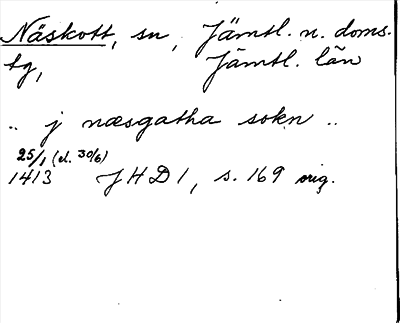 Näskott, sn, Jämtl. n. doms.
tg, Jämtl. län
.. j næsgatha sokn ..
25/1 (el. 30/6)
1413 JHD 1, s. 169 orig.